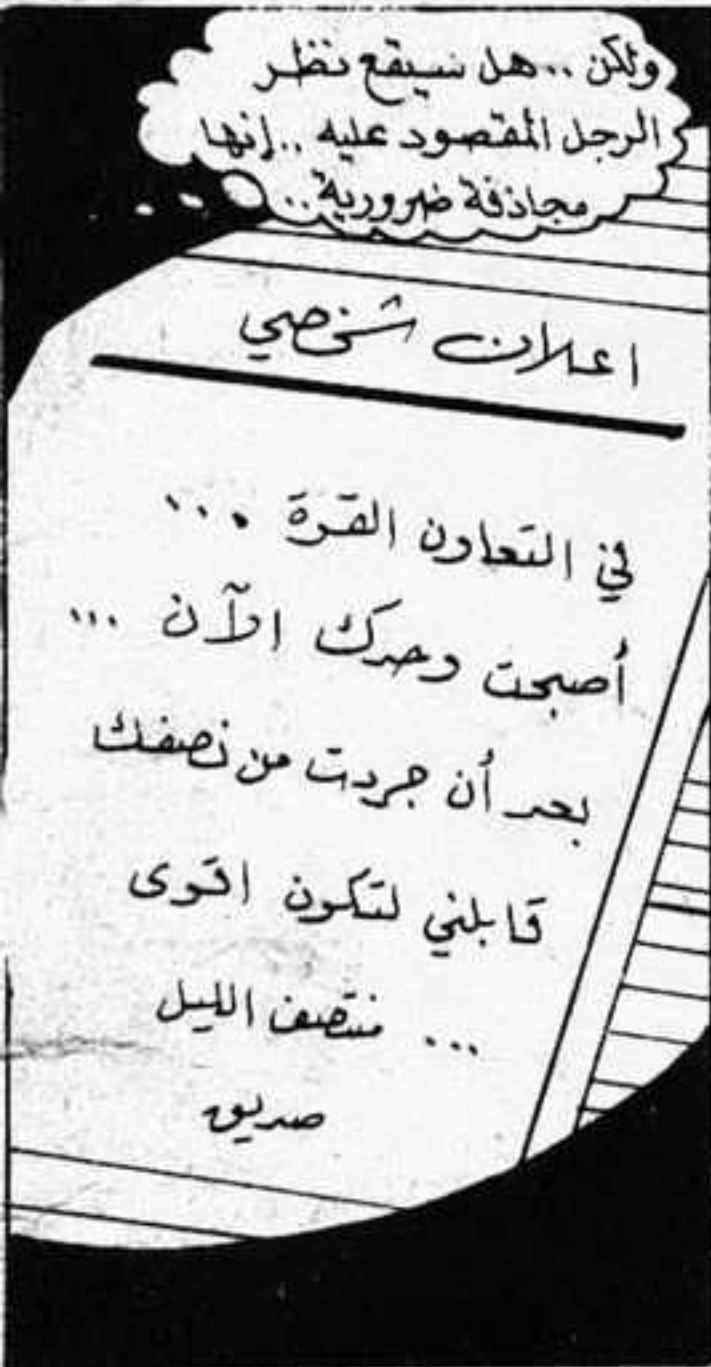 ولكن .. هل سيقع نظر
الرجل المقصود عليه .. إنها
مجاذفة ضرورية ..
اعلان شخصي
في التعاون القوة ...
أصبحت وحدك الآن ...
بعد أن جردت من نصفك
قابلني لتكون اقوى
... منتصف الليل
صديق